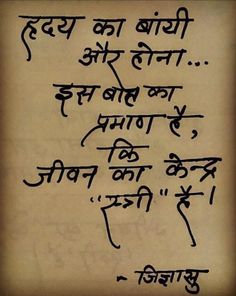 हृदय का बांयी
और होना...
इस बात का
प्रमाण है,
कि
जीवन का केन्द्र
"स्त्री" है!
- जिज्ञासु